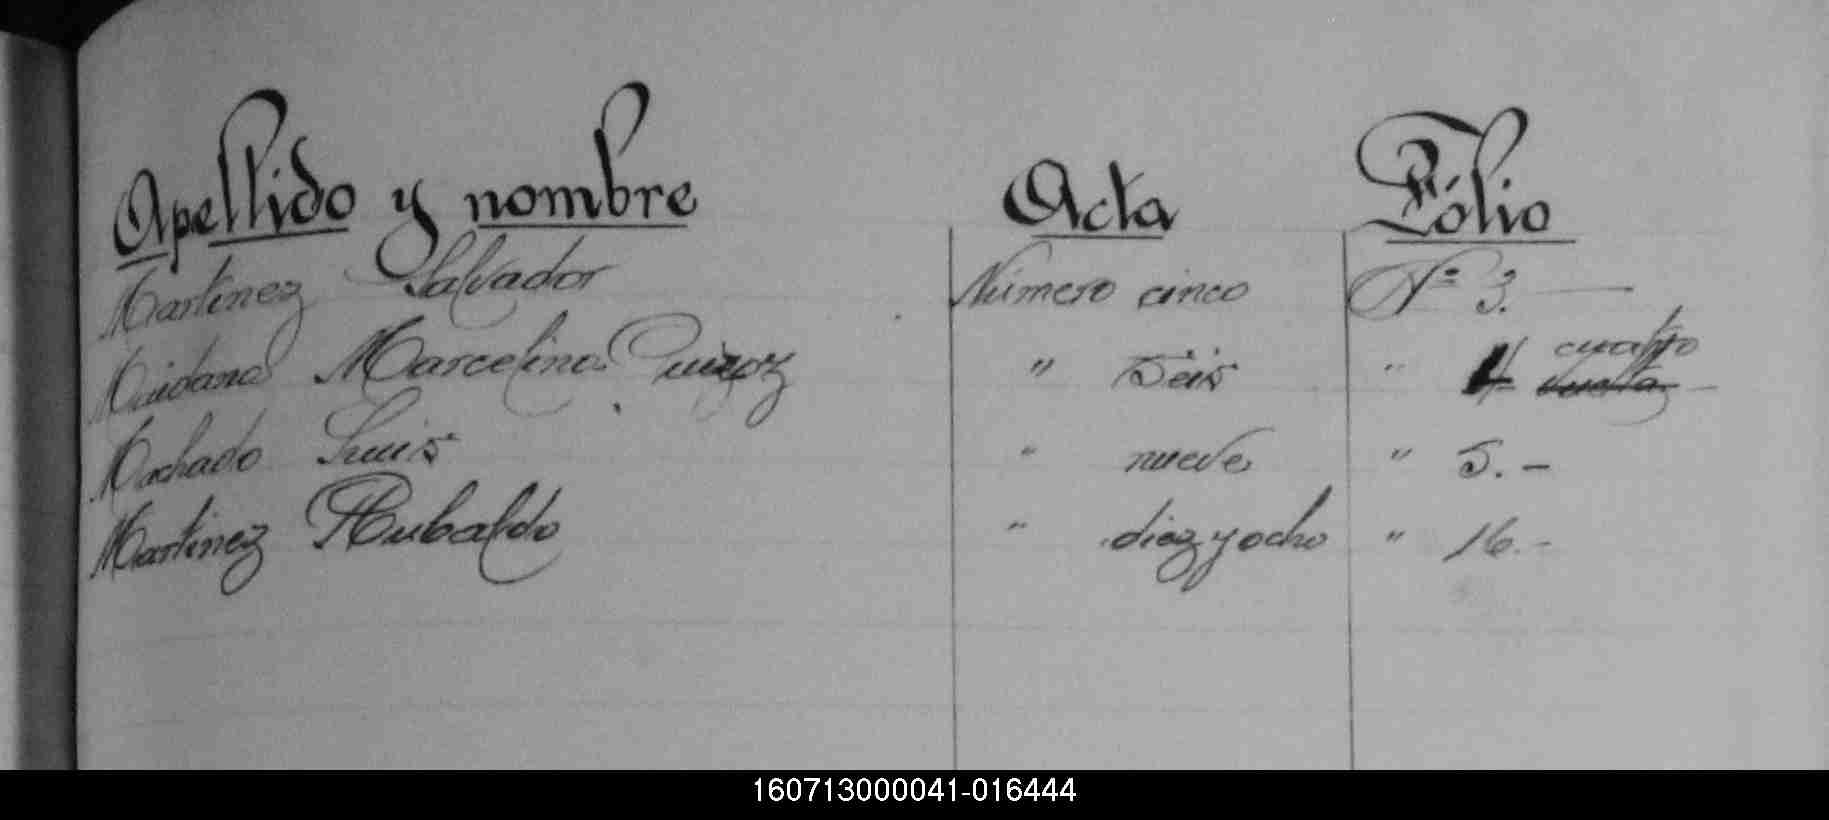 Apellido y nombre Acta Fólio
Martinez Salvador Número cinco Nº 3. —
Maidana Marcelino Quiroz " Seis " 4 cuatro
Machado Luis " nueve " 5. –
Martinez Rubaldo " diez y ocho " 16. –
160713000041-016444